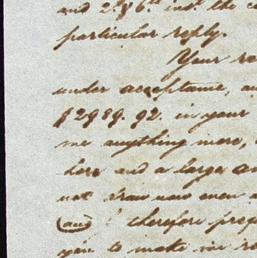 and 2. & 6th inst. the
particular reply.
Your
under acceptance,
$2989.92. in your
me anything more,
here and a larger
not draw now even
(and) therefore
you to make me